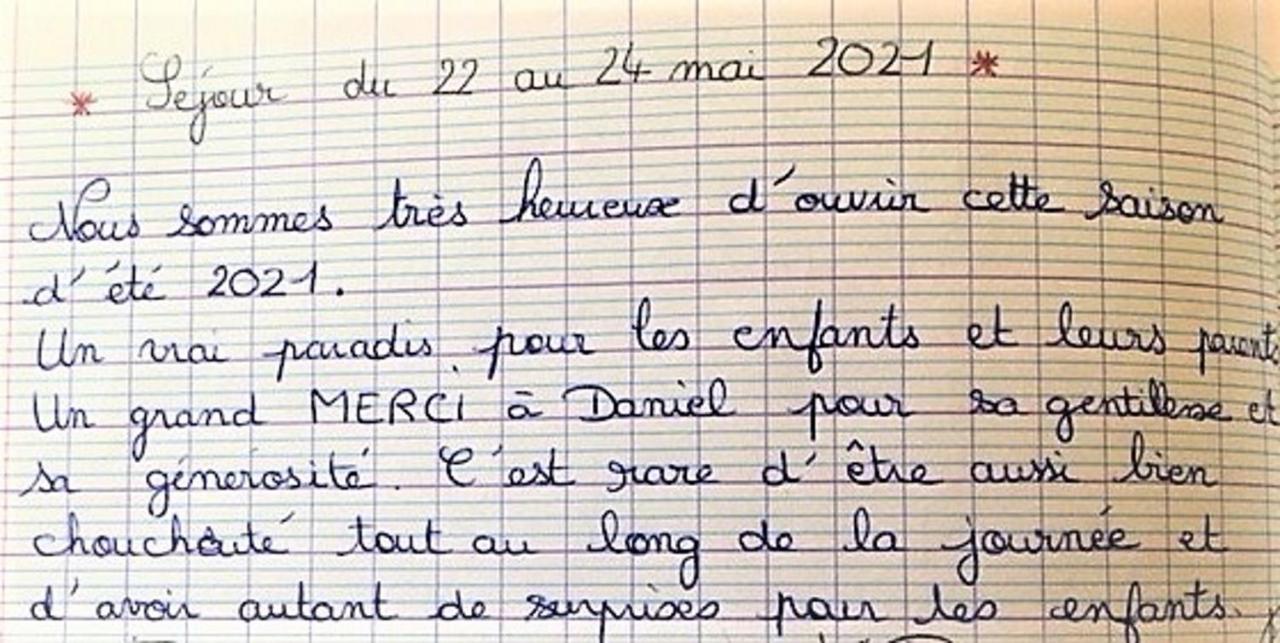 * Séjour du 22 au 24 mai 2021 *
Nous sommes très heureux d'ouvrir cette saison
d'été 2021.
Un vrai paradis pour les enfants et leurs parents
Un grand MERCI à Daniel pour sa gentillesse et
sa génerosité. C'est rare d'être aussi bien
chouchouté tout au long de la journée et
d'avoir autant de surprises pour les enfants.